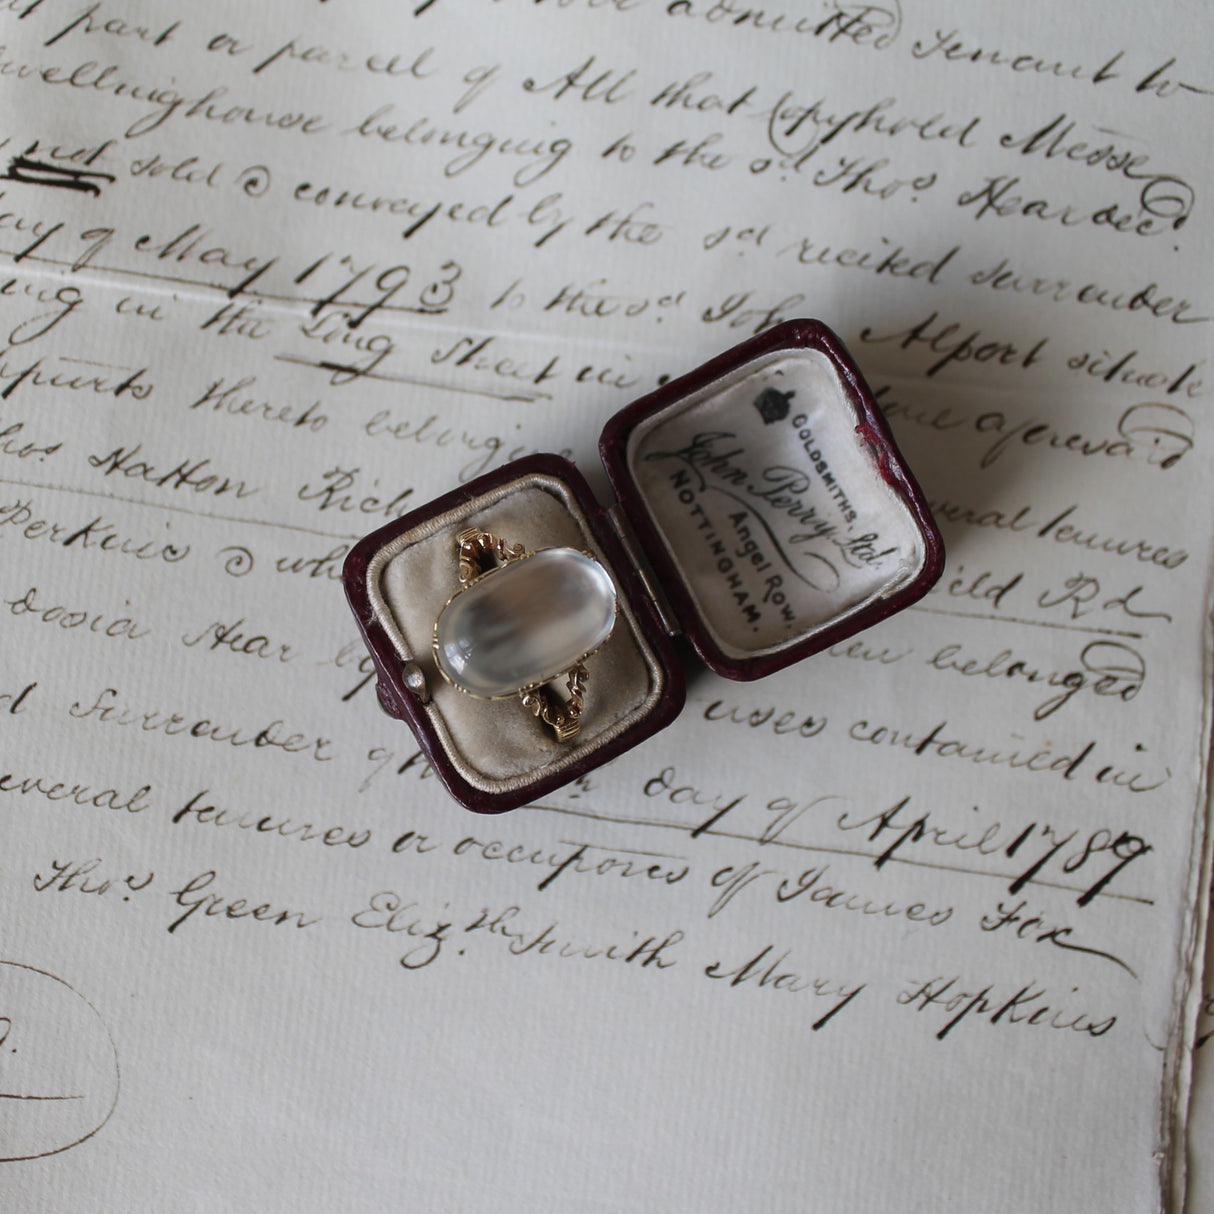 admitted Tenant to
part or parcel of All that Copyhold Messe
dwellinghouse belonging to the sd. Thos. Hear decd.
not sold & conveyed by the sd recited Surrender
day of May 1793 to the sd. John Alport situate
in the Long Street in aforesaid
thereto belonging
Thos. Hatton Rich several tenures
Perkins & Rd
belonged
uses contained in
Surrender of day of April 1789
several tenures or occupcons of James Fox
Thos. Green Elizth. Smith Mary Hopkins
GOLDSMITHS,
John Perry, Ltd.
Angel Row,
NOTTINGHAM.